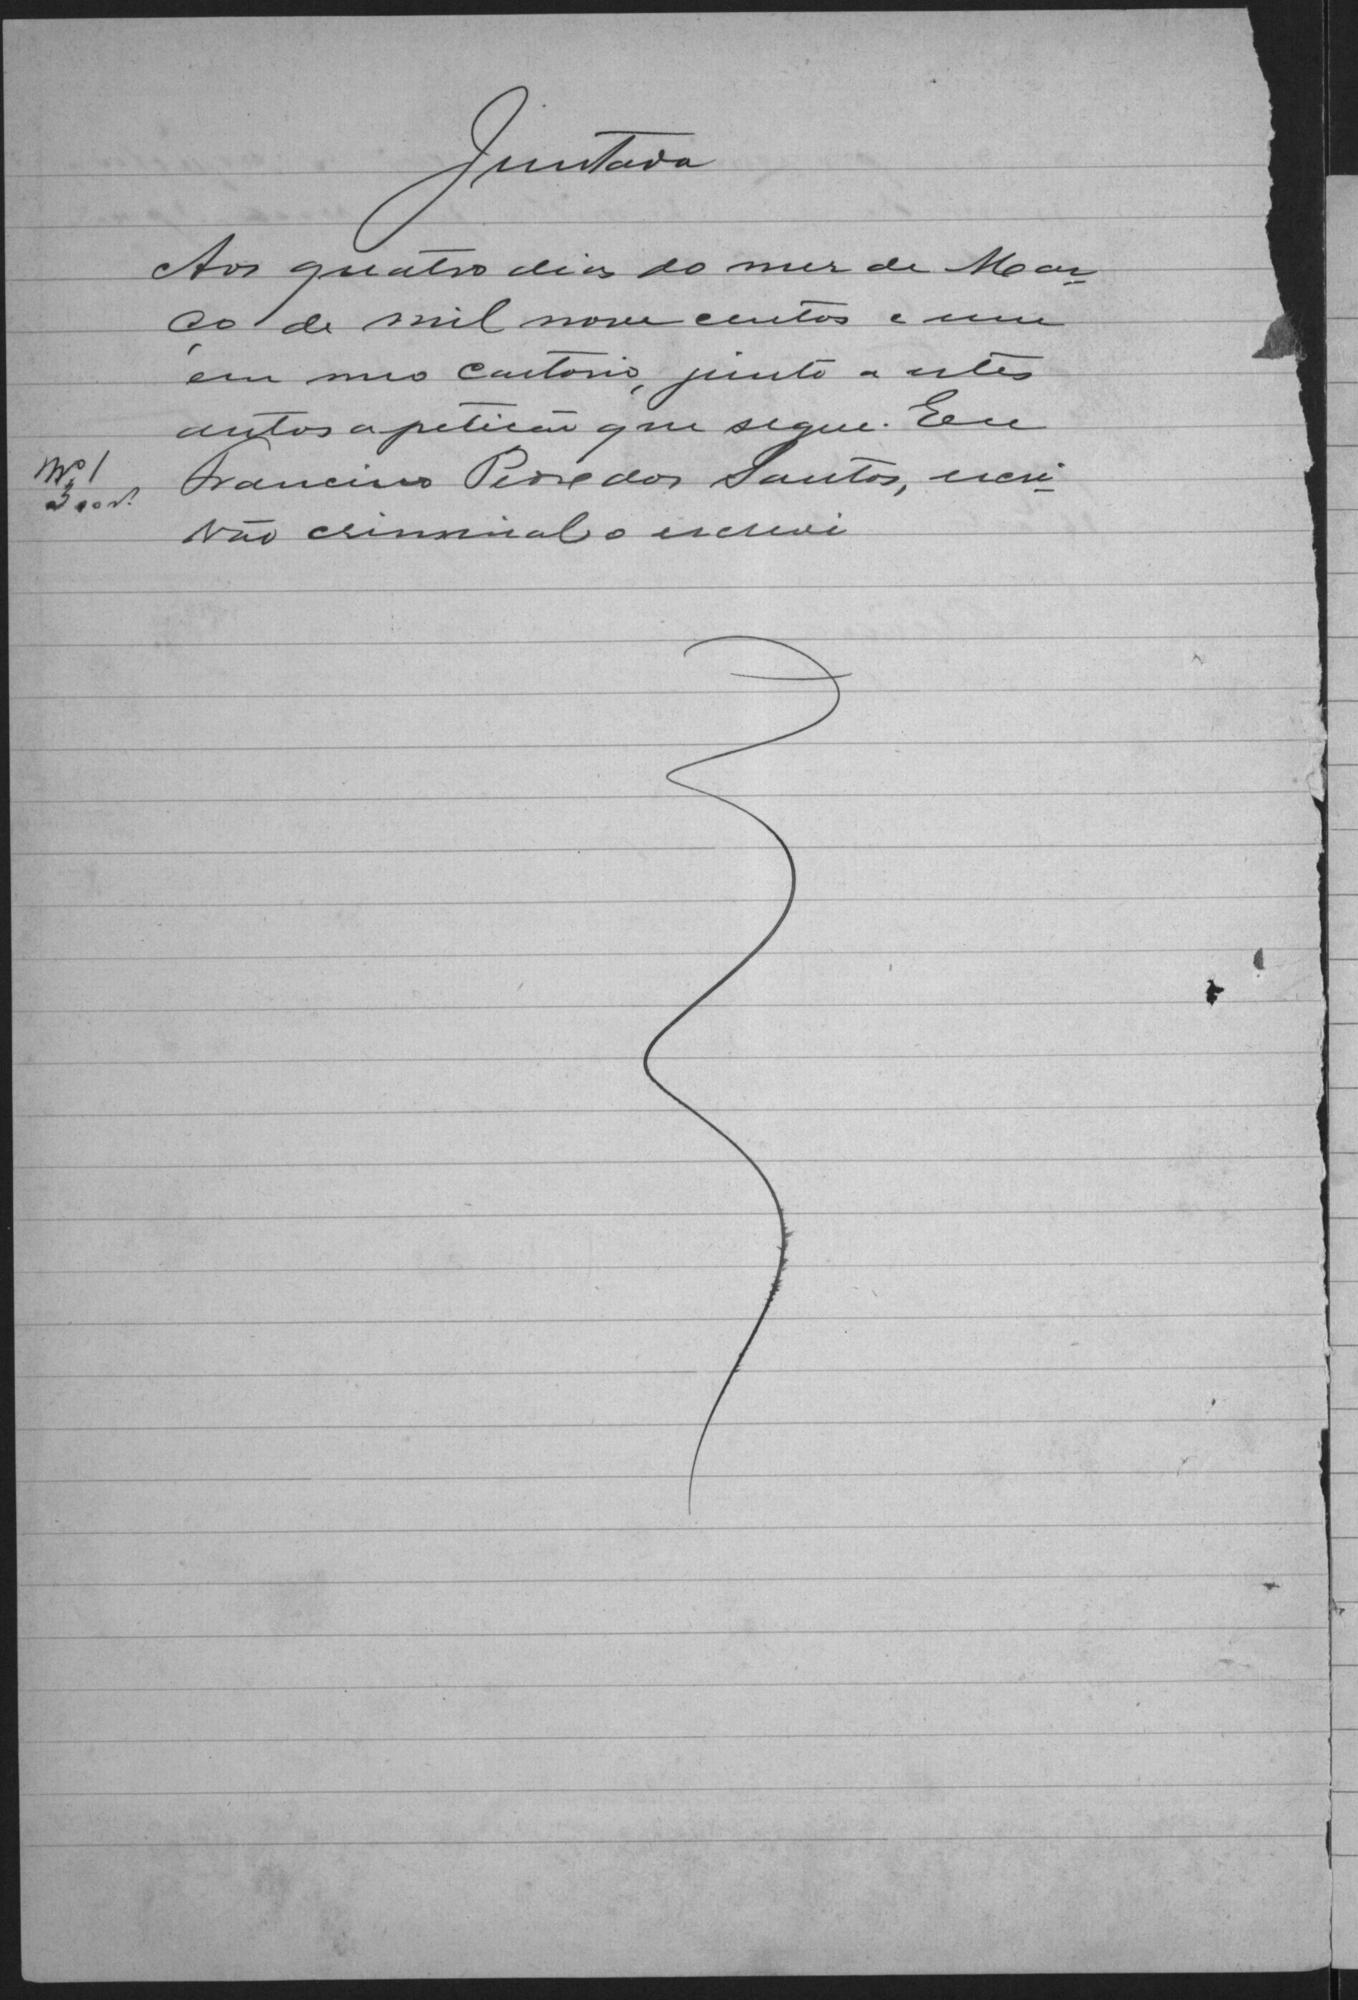 Juntada
Aos quatro dias do mez de Mar-
ço de mil nove centos e um
em meo cartorio, junto a estes
autos a petição que segue. Eu
Francisco dos Santos, escri-
vão criminal o escrevi
Nº 1